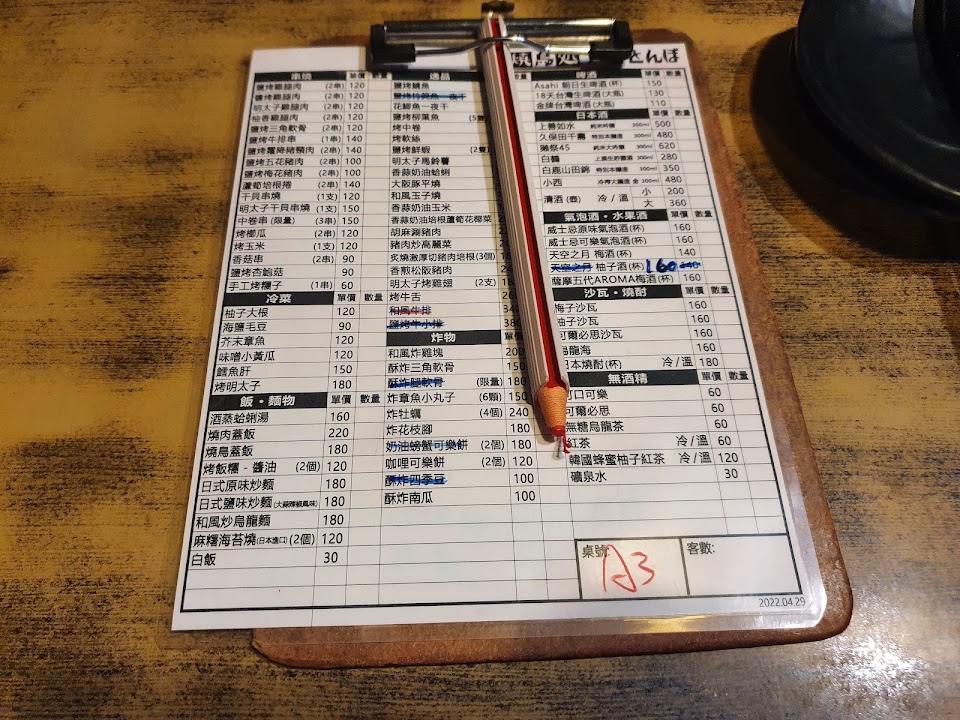 燒鳥処 とんぼ
串燒 單價 數量
鹽烤雞腿肉 (2串) 120
鹽烤雞腿肉 (2串) 120
明太子雞腿肉 (2串) 140
柚香雞腿肉 (2串) 120
鹽烤三角軟骨 (2串) 120
鹽烤牛排串 (1串) 140
鹽烤霜降豬頸肉 (2串) 140
鹽烤五花豬肉 (2串) 100
鹽烤梅花豬肉 (2串) 100
蘆筍培根捲 (2串) 140
干貝串燒 (1支) 120
明太子干貝串燒 (1支) 150
中卷串 (限量) (3串) 150
烤櫛瓜 (2串) 120
烤玉米 (1支) 120
香菇串 (2串) 90
鹽烤杏鮑菇 90
手工烤糯子 (1串) 60
冷菜 單價 數量
柚子大根 120
海鹽毛豆 90
芥末章魚 120
味噌小黃瓜 120
鱈魚肝 150
烤明太子 180
飯・麵物 單價 數量
酒蒸蛤蜊湯 160
燒肉蓋飯 220
燒鳥蓋飯 180
烤飯糰 - 醬油 (2個) 120
日式原味炒麵 180
日式鹽味炒麵 (大蒜辣椒風味) 180
和風炒烏龍麵 180
麻糬海苔燒 (日本進口) (2個) 120
白飯 30
逸品
鹽烤鯖魚
鹽烤竹筴魚一夜干
花鯽魚一夜干
鹽烤柳葉魚
烤中卷
烤軟絲
鹽烤鮮蝦
明太子馬鈴薯
香蒜奶油蛤蜊
大阪豚平燒
和風玉子燒
香蒜奶油玉米
香蒜奶油培根蘆筍花椰菜
胡麻涮豬肉
豬肉炒高麗菜
炙燒激厚切豬肉培根(3個)
香煎松阪豬肉
明太子烤雞翅 (2支)
烤牛舌
和風牛排
鹽烤牛小排 380
炸物 單價
和風炸雞塊 200
酥炸三角軟骨 150
酥炸腿軟骨 (限量) 180
炸章魚小丸子 (6顆) 150
炸牡蠣 (4個) 240
炸花枝腳 180
奶油螃蟹可樂餅 (2個) 180
咖哩可樂餅 (2個) 120
酥炸四季豆 100
酥炸南瓜 100
數量
啤酒 單價 數量
Asahi 朝日生啤酒 (杯) 150
18天台灣啤酒 (大瓶) 130
金牌台灣啤酒 (大瓶) 110
日本酒
上善如水 純米吟釀 300ml 500
久保田千壽 特別本釀造 300ml 480
獺祭45 純米大吟釀 300ml 620
白鶴 上撰生貯藏酒 300ml 280
白鹿山田錦 特別本釀造 300ml 350
小西 300ml 480
清酒 (壺) 冷 / 溫 小 200
大 360
氣泡酒・水果酒 單價 數量
威士忌原味氣泡酒 (杯) 160
威士忌可樂氣泡酒 (杯) 160
天空之月 梅酒 (杯) 140
天空之月 柚子酒 (杯) 160 140
薩摩五代AROMA梅酒 (杯) 160
沙瓦・燒酎 單價 數量
梅子沙瓦 160
柚子沙瓦 160
可爾必思沙瓦 160
烏龍海 160
日本燒酎 (杯) 冷 / 溫 180
無酒精 單價 數量
可口可樂 60
可爾必思 60
無糖烏龍茶 60
紅茶 冷 / 溫 60
韓國蜂蜜柚子紅茶 冷 / 溫 120
礦泉水 30
桌號: A3 客數:
2022.04.29